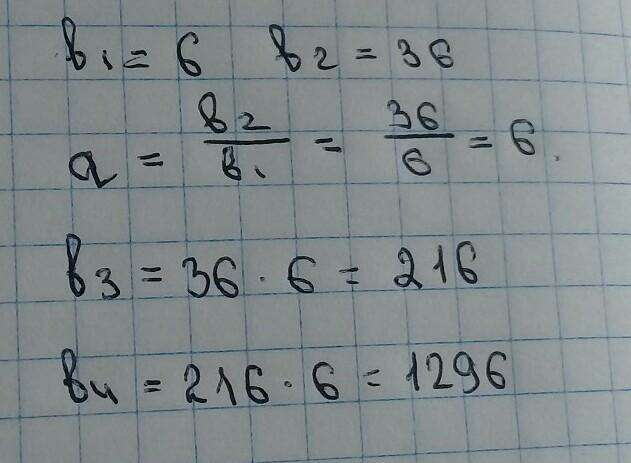 b₁ = 6 b₂ = 36
q = b₂/b₁ = 36/6 = 6.
b₃ = 36 · 6 = 216
b₄ = 216 · 6 = 1296